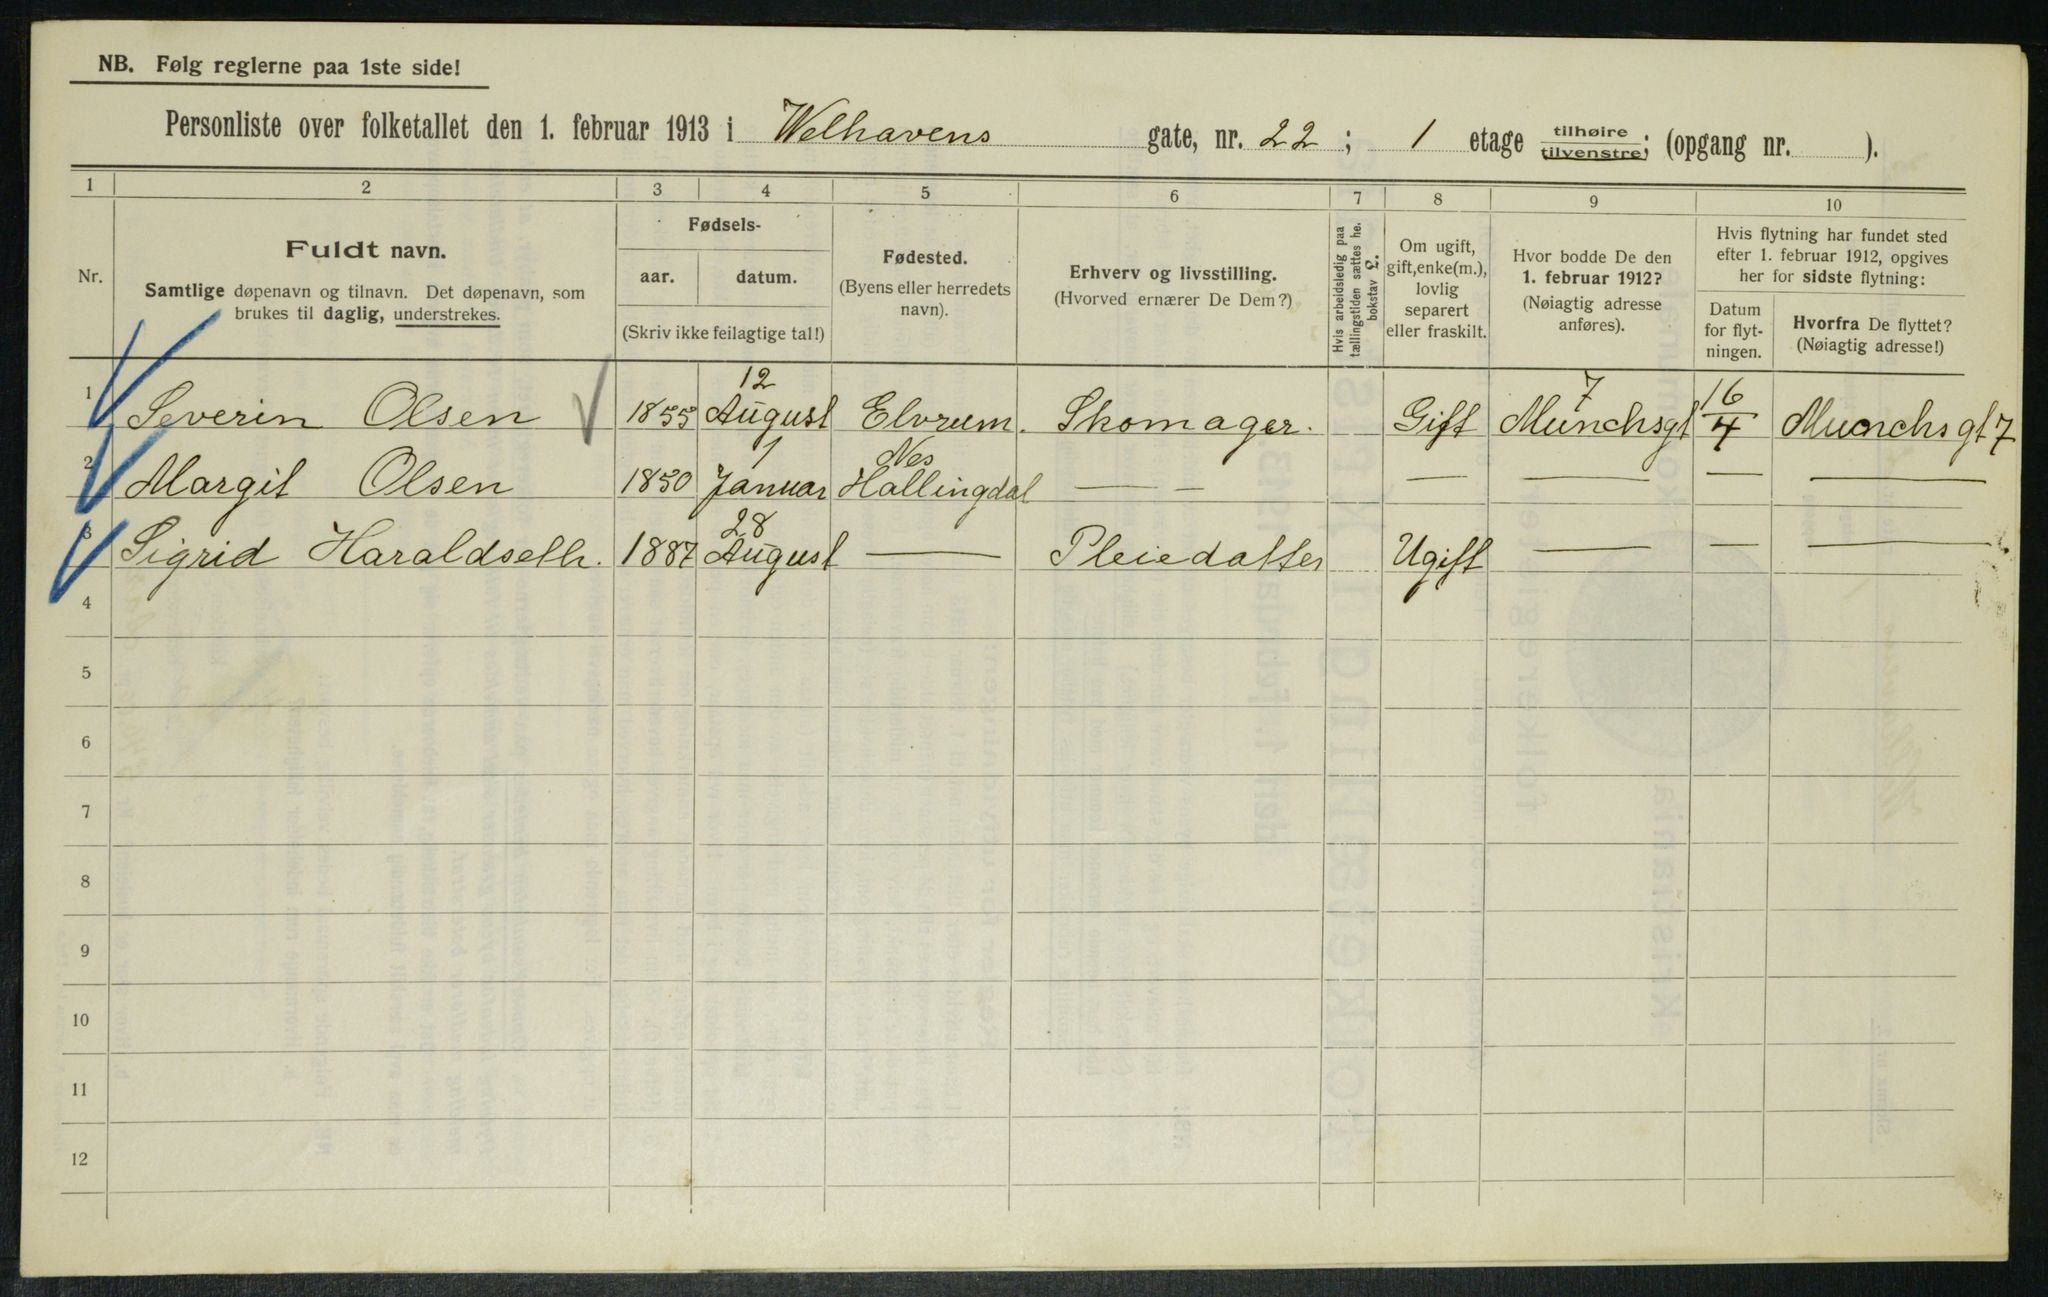 NB. Følg reglerne paa 1ste side!
Personliste over folketallet den 1. februar 1913 i Welhavens gate, nr. 22; 1 etage tilhøire tilvenstre; (opgang nr. ).
1 2 3 4 5 6 7 8 9 10
Nr.
Fuldt navn.
Samtlige døpenavn og tilnavn. Det døpenavn, som
brukes til daglig, understrekes.
Fødsels-
aar. datum.
(Skriv ikke feilagtige tal!)
Fødested.
(Byens eller herredets
navn).
Erhverv og livsstilling.
(Hvorved ernærer De Dem?)
Hvis arbeidsledig paa
tællingstiden sættes he.
bokstav L.
Om ugift,
gift, enke(m.),
lovlig
separert
eller fraskilt.
Hvor bodde De den
1. februar 1912?
(Nøiagtig adresse
anføres).
Hvis flytning har fundet sted
efter 1. februar 1912, opgives
her for sidste flytning:
Datum
for flyt-
ningen.
Hvorfra De flyttet?
(Nøiagtig adresse!)
1 Severin Olsen 1855 12 August Elvrum. Skomager. Gift Munchsgt 7 16/4 Munchsgt 7
2 Margit Olsen 1850 1 Januar Nes Hallingdal — - — — — —
3 Sigrid Haraldseth. 1887 28 August — Pleiedatter Ugift — — —
4
5
6
7
8
9
10
11
12